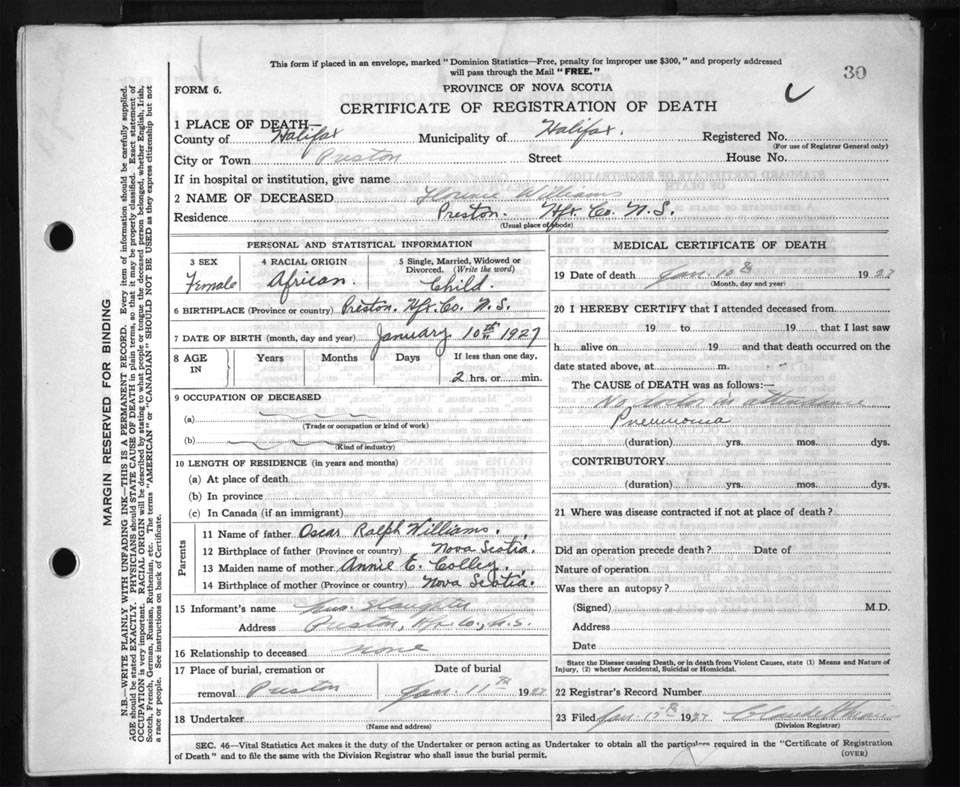 This form if placed in an envelope, marked "Dominion Statistics—Free, penalty for improper use $300," and properly addressed
will pass through the Mail "FREE."
30
FORM 6.
PROVINCE OF NOVA SCOTIA
CERTIFICATE OF REGISTRATION OF DEATH
1 PLACE OF DEATH—
County of Halifax Municipality of Halifax. Registered No.
(For use of Registrar General only)
City or Town Preston Street House No.
If in hospital or institution, give name
2 NAME OF DECEASED Williams
Residence Preston. Hfx. Co. N.S.
(Usual place of abode)
PERSONAL AND STATISTICAL INFORMATION
3 SEX
Female
4 RACIAL ORIGIN
African.
5 Single, Married, Widowed or
Divorced. (Write the word)
Child.
6 BIRTHPLACE (Province or country) Preston. Hfx. Co. N.S.
7 DATE OF BIRTH (month, day and year) January 10th 1927
8 AGE
IN
Years
Months
Days
If less than one day,
2 hrs. or min.
9 OCCUPATION OF DECEASED
(a)
(Trade or occupation or kind of work)
(b)
(Kind of industry)
10 LENGTH OF RESIDENCE (in years and months)
(a) At place of death
(b) In province
(c) In Canada (if an immigrant)
Parents
11 Name of father Oscar Ralph Williams.
12 Birthplace of father (Province or country) Nova Scotia.
13 Maiden name of mother Annie E. Colley.
14 Birthplace of mother (Province or country) Nova Scotia.
15 Informant's name Slaughter
Address Preston, Hfx. Co., N.S.
16 Relationship to deceased none
17 Place of burial, cremation or
removal Preston
Date of burial
Jan. 11th 1927
18 Undertaker
(Name and address)
MEDICAL CERTIFICATE OF DEATH
19 Date of death Jan. 10th 1927
(Month, day and year)
20 I HEREBY CERTIFY that I attended deceased from
19 to 19 , that I last saw
h alive on 19 and that death occurred on the
date stated above, at m.
The CAUSE of DEATH was as follows:—
No doctor in attendance
Pneumonia
(duration) yrs. mos. dys.
CONTRIBUTORY
(duration) yrs. mos. dys.
21 Where was disease contracted if not at place of death?
Did an operation precede death? Date of
Nature of operation
Was there an autopsy?
(Signed) M.D.
Address
Date
State the Disease causing Death, or in death from Violent Causes, state (1) Means and Nature of
Injury, (2) whether Accidental, Suicidal or Homicidal.
22 Registrar's Record Number
23 Filed Jan. 15th 1927
(Division Registrar)
SEC. 46—Vital Statistics Act makes it the duty of the Undertaker or person acting as Undertaker to obtain all the particulars required in the "Certificate of Registration
of Death" and to file the same with the Division Registrar who shall issue the burial permit.
(OVER)
MARGIN RESERVED FOR BINDING
N.B.—WRITE PLAINLY WITH UNFADING INK—THIS IS A PERMANENT RECORD. Every item of information should be carefully supplied.
AGE should be stated EXACTLY. PHYSICIANS should STATE CAUSE OF DEATH in plain terms, so that it may be properly classified. Exact statement of
OCCUPATION is very important. RACIAL ORIGIN will be described by stating to what people or tongue the deceased person belonged, whether English, Irish,
Scotch, French, German, Russian, Ruthenian, etc. The terms "AMERICAN" or "CANADIAN" SHOULD NOT BE USED as they express citizenship but not
a race or people. See instructions on back of Certificate.